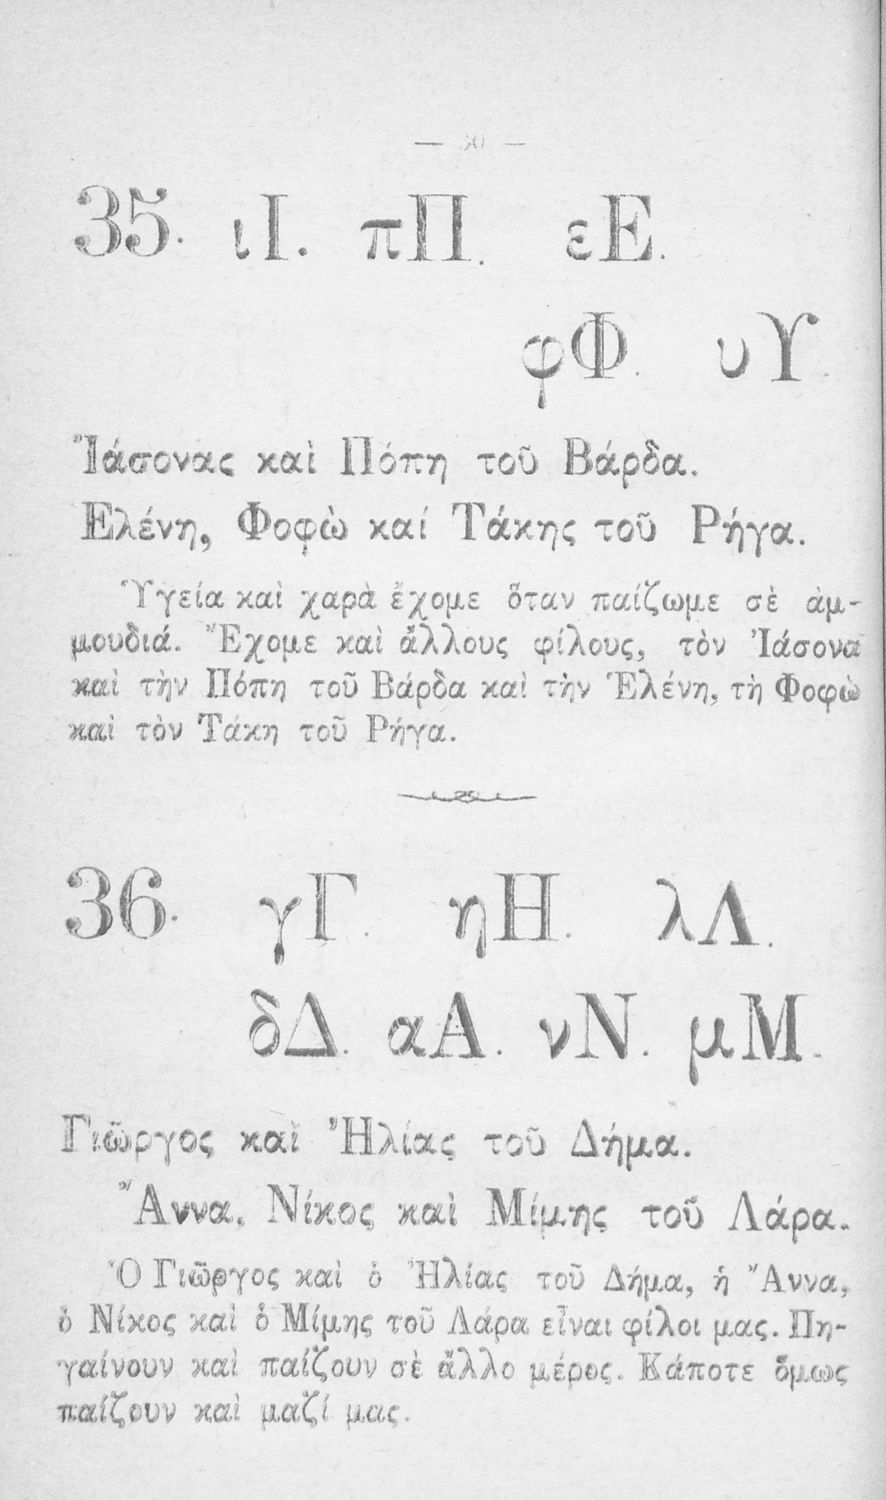 — 30 —
35. ιΙ. πΠ. εΕ.
φΦ. υΥ.
Ἰάσονας καὶ Πόπη τοῦ Βάρδα.
Ἑλένη, Φοφὼ καί Τάκης τοῦ Ρήγα.
Ὑγεία καὶ χαρὰ ἔχομε ὅταν παίζωμε σὲ ἀμ-
μουδιά. Ἔχομε καὶ ἄλλους φίλους, τὸν Ἰάσονα
καὶ τὴν Πόπη τοῦ Βάρδα καὶ τὴν Ἑλένη, τὴ Φοφὼ
καὶ τὸν Τάκη τοῦ Ρήγα.
36. γΓ. ηΗ. λΛ.
δΔ. αΑ. νΝ. μΜ.
Γιῶργος καὶ Ἠλίας τοῦ Δήμα.
Ἄννα, Νίκος καὶ Μίμης τοῦ Λάρα.
Ὁ Γιῶργος καὶ ὁ Ἠλίας τοῦ Δήμα, ἡ Ἄννα,
ὁ Νίκος καὶ ὁ Μίμης τοῦ Λάρα εἶναι φίλοι μας. Πη-
γαίνουν καὶ παίζουν σὲ ἄλλο μέρος. Κάποτε ὅμως
παίζουν καὶ μαζί μας.